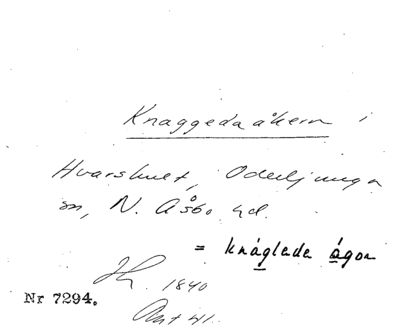 Knaggeda åkern i
Hvarshult, Oderljunga
sn, N. Åsbo hd.
= knáglada ágor
1840
Nr 7294.
Ant 41.